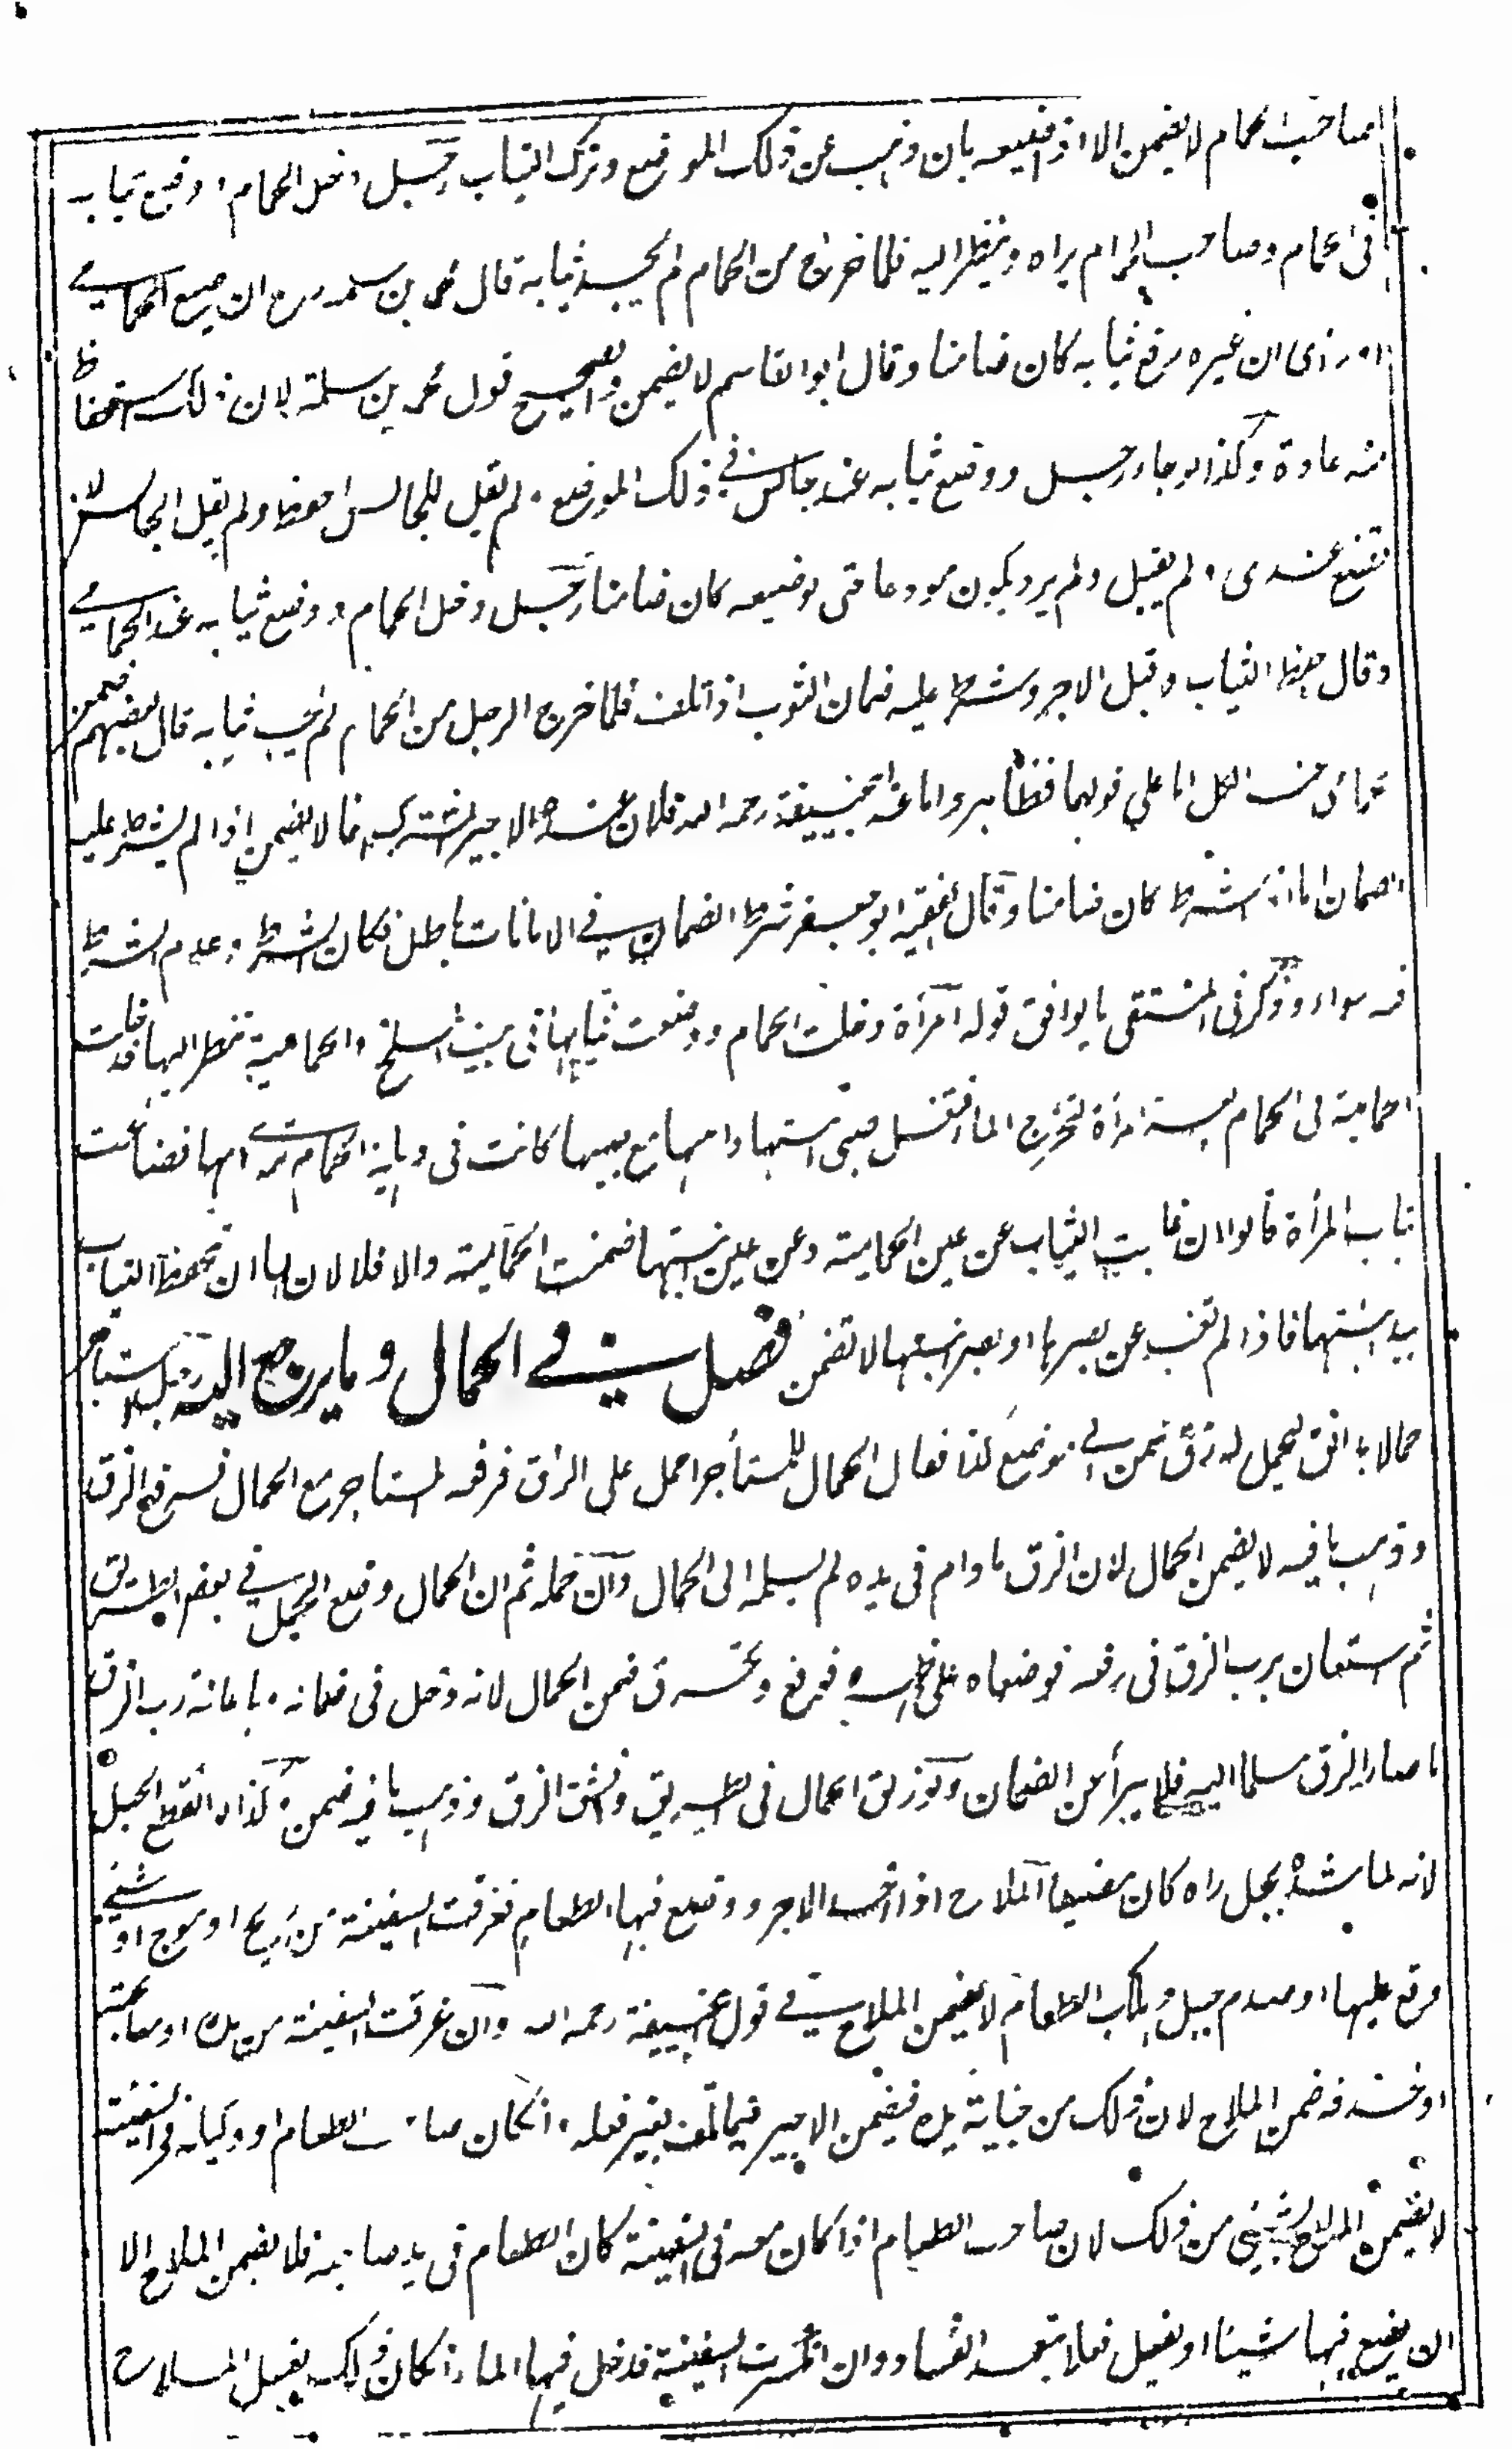 صاحب الحمام لا يضمن الا اذا ضيعه بان ذهب عن ذلك الموضع وترك الثياب رجل دخل الحمام ووضع ثيابه
في الحمام وصاحب الحمام يراه وينظر اليه فلما خرج من الحمام لم يجد ثيابه قال محمد بن سلمة رح ان ضيع الحمامي
او رأى ان غيره رفع ثيابه كان ضامنا وقال ابو القاسم لا يضمن والصحيح قول محمد بن سلمة لان ذلك استحفاظ
منه عادة وكذا لو جاء رجل ووضع ثيابه عند جالس في ذلك الموضع ولم يقل للجالس احفظ ولم يقل الجالس لا
تضع عندي ولم يقبل ولم يرد يكون مودعا حتى لو ضيعه كان ضامنا رجل دخل الحمام ووضع ثيابه عند الحمامي
وقال احفظ الثياب وقبل الاجر وشرط عليه ضمان الثوب اذا تلف فلما خرج الرجل من الحمام لم يجد ثيابه قال بعضهم يضمن
الحمامي عند الكل اما على قولهما فظاهر واما عند ابي حنيفة رحمه الله فلان عنده الاجير المشترك انما لا يضمن اذا لم يشترط عليه
الضمان اما اذا شرط كان ضامنا وقال الفقيه ابو جعفر شرط الضمان في الامانات باطل فكان الشرط وعدم الشرط
فيه سواء وذكر في المنتقى ما يوافق قوله امرأة دخلت الحمام ووضعت ثيابها في بيت المسلخ والحمامية تنظر اليها فدخلت
الحمامية في الحمام بعد امرأة لتخرج الماء فتغسل صبي ابنتها وابنتها مع صبيها كانت في دهليز الحمام ترى امها فضاعت
ثياب المرأة قالوا ان غابت الثياب عن عين الحمامية وعن عين بنتها ضمنت الحمامية والا فلا لان لها ان تحفظ الثياب
بيد بنتها فاذا لم تغب عن بصرها او بصر بنتها لا تضمن فصل في الحمال وما يرجع اليه رجل استاجر
حمالا باناق ليحمل له زق سمن الى موضع كذا فقال الحمال للمستأجر احمل على الزق فرفعه المستاجر مع الحمال فسرق الزق
وذهب ما فيه لا يضمن الحمال لان الزق ما دام في يده لم يسلمه الى الحمال وان حمله ثم ان الحمال وضع الحمل في بعض الطريق
ثم استعان برب الزق في رفعه فوضعاه على ظهره فوقع وتخرق ضمن الحمال لانه دخل في ضمانه وباعانة رب الزق
ما صار الزق مسلما اليه فلا يبرأ من الضمان ولو زلق الحمال في الطريق وانشق الزق وذهب ما فيه ضمن وكذا لو انقطع الحبل
لانه لما شده بحبل واه كان مضيعا الملاح اذا اخذ الاجر ووضع فيها الطعام فغرقت السفينة من ريح او موج او شيء
وقع عليها او صدم جبل وهلك الطعام لا يضمن الملاح في قول ابي حنيفة رحمه الله وان غرقت السفينة من يده او معالجته
او جذفه ضمن الملاح لان ذلك من جناية يده فيضمن الاجير فيما تلف بغير فعله وان كان صاحب الطعام او وكيله في السفينة
لا يضمن الملاح لشيء من ذلك لان صاحب الطعام اذا كان معه في السفينة كان الطعام في يد صاحبه فلا يضمن الملاح الا
ان يضع فيها شيئا او يفعل فعلا يتعمد الفساد وان انكسرت السفينة فدخل فيها الماء ان كان ذلك بفعل الملاح